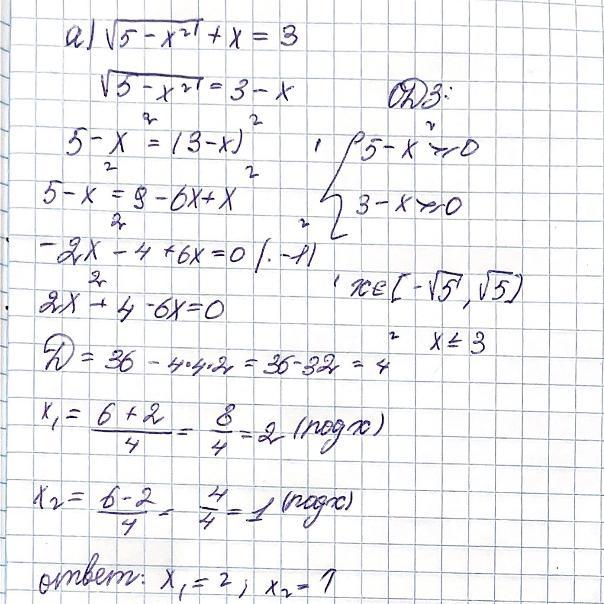 а) √(5 - x²) + x = 3
√(5 - x²) = 3 - x
ОДЗ:
5 - x² = (3 - x)²
{ 5 - x² ≥ 0
5 - x² = 9 - 6x + x²
3 - x ≥ 0
-2x² - 4 + 6x = 0 | · -1)
x ∈ [-√5, √5]
2x² + 4 - 6x = 0
x ≤ 3
D = 36 - 4·4·2 = 36 - 32 = 4
x₁ = (6 + 2)/4 = 8/4 = 2 (подх)
x₂ = (6 - 2)/4 = 4/4 = 1 (подх)
ответ: x₁ = 2; x₂ = 1